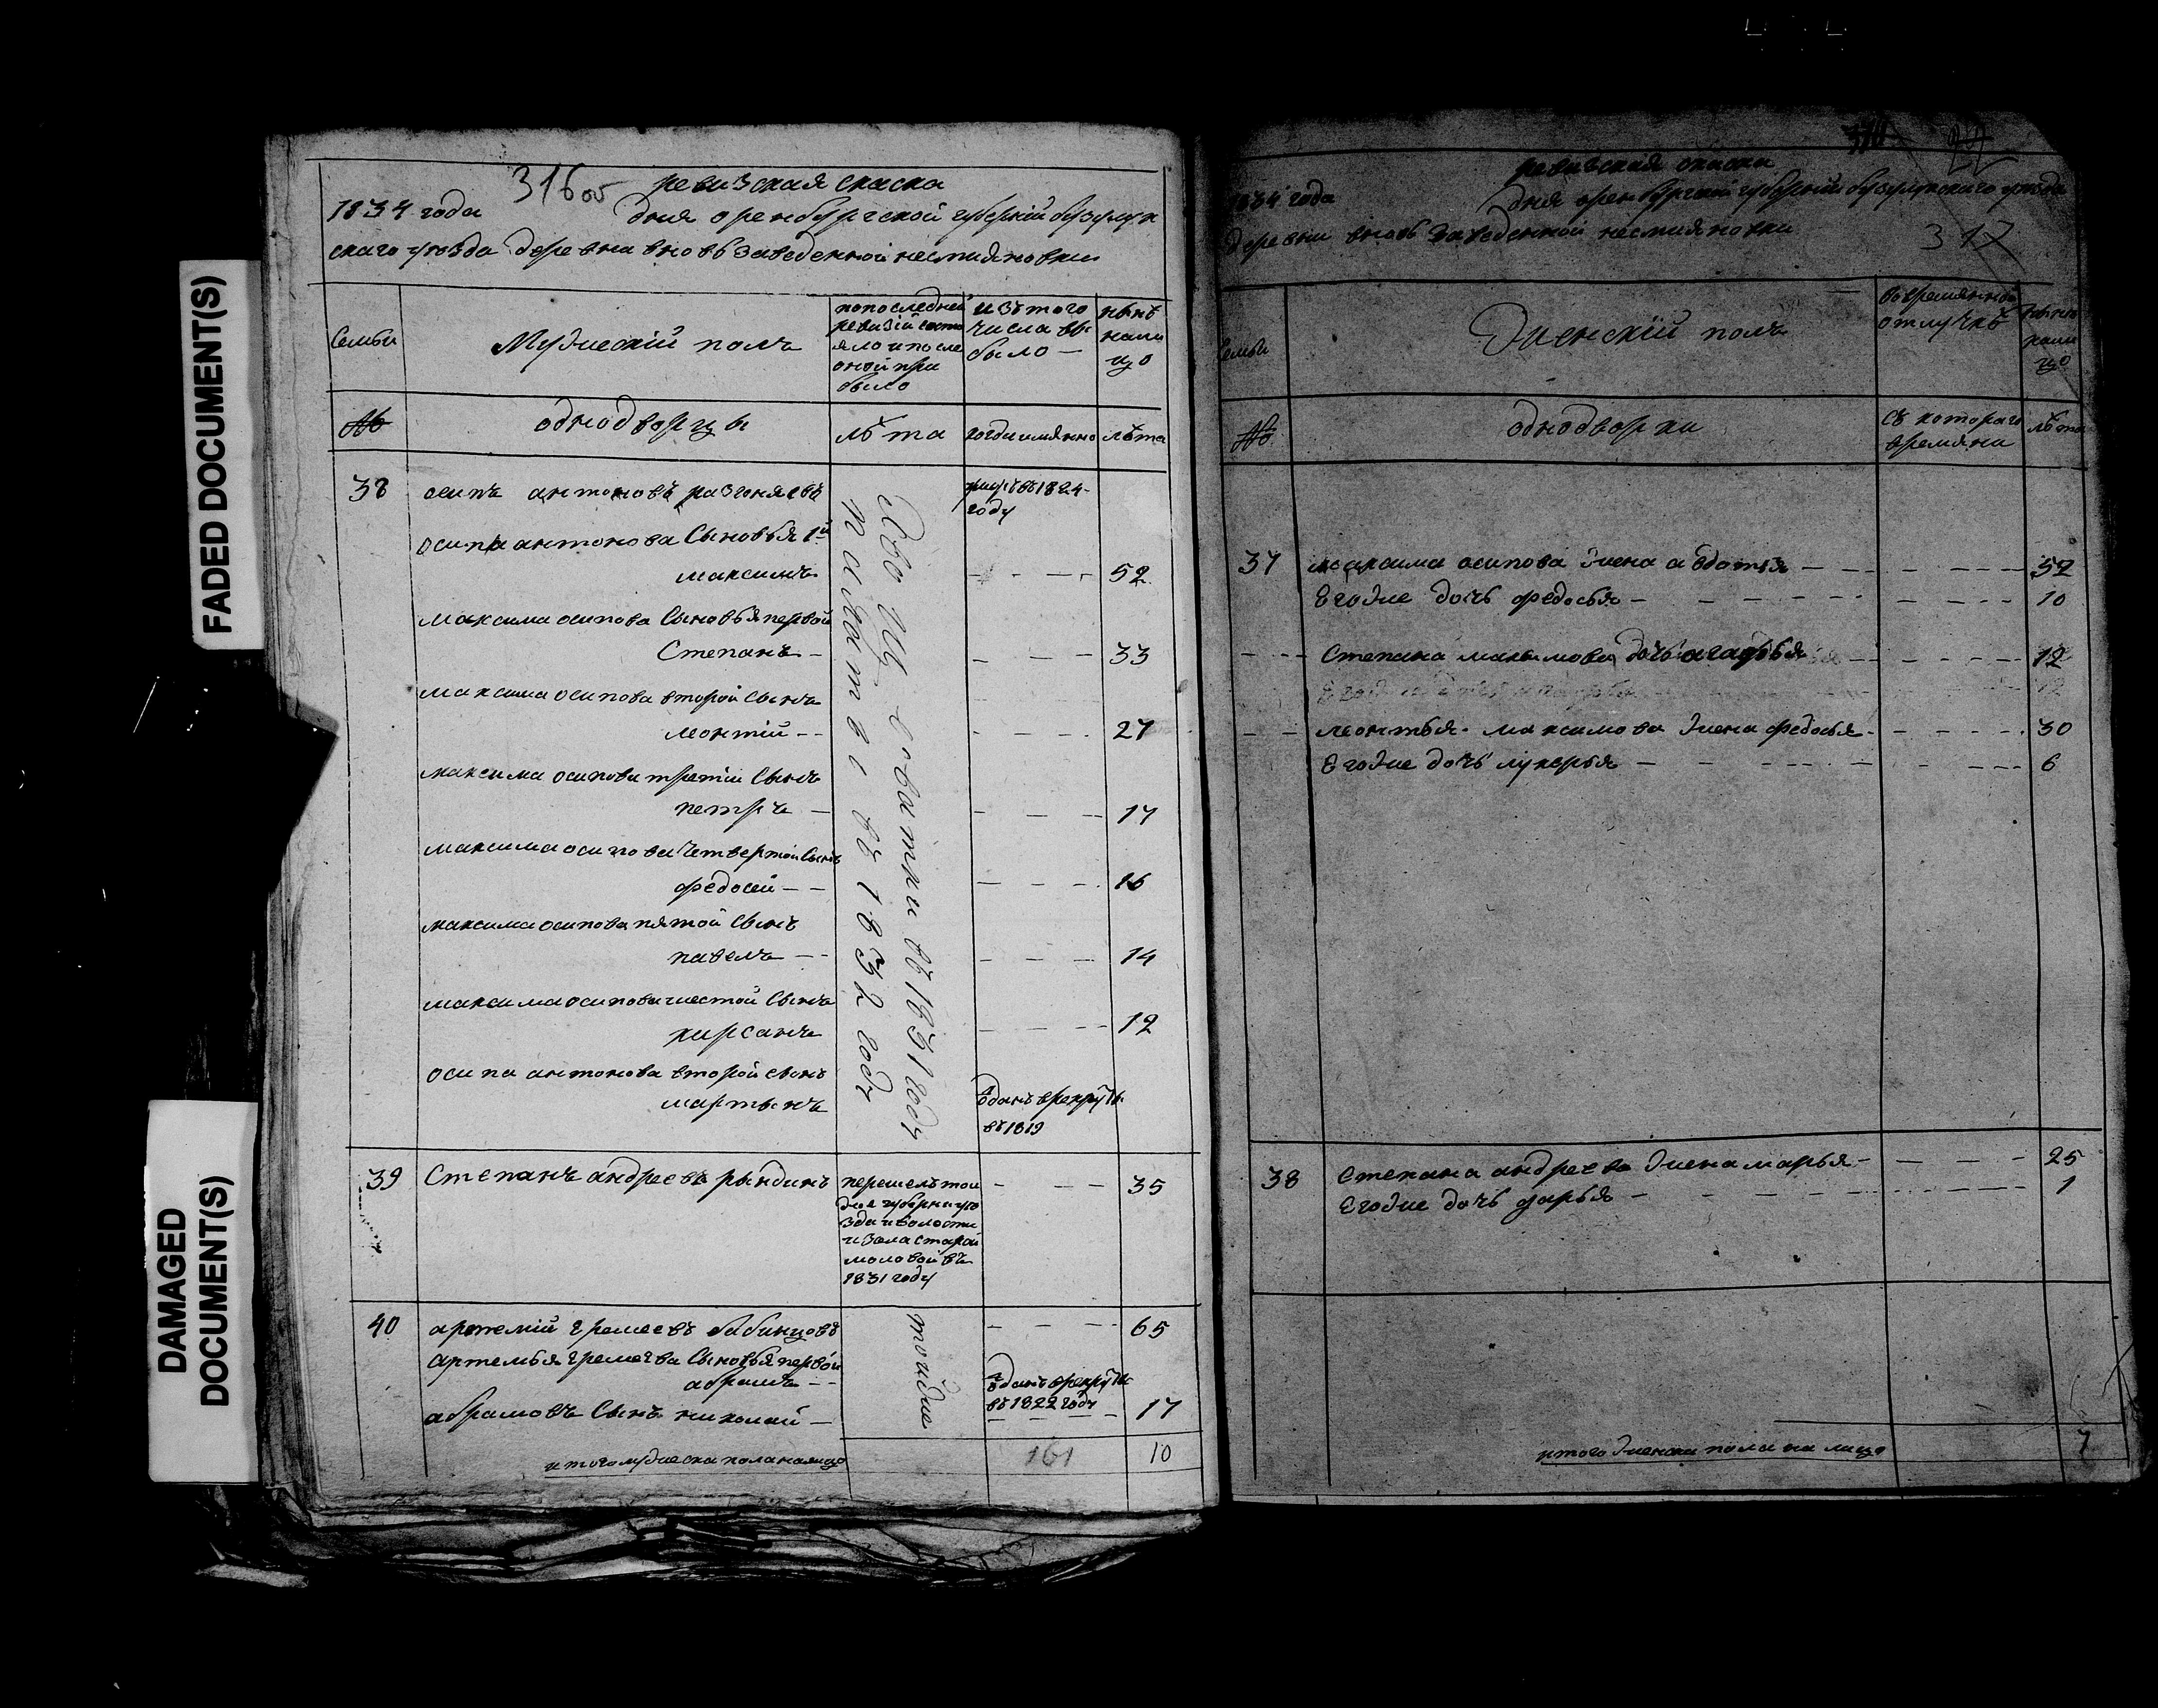 FADED DOCUMENT(S)
DAMAGED
DOCUMENT(S)
316 об
ревизская сказка
1834 года дня оренбургской губернiи бузулук
скаго уѣзда деревна вновь заведенной несмияновки
Семьи
Мужескiй полъ
попоследней
ревизiй состо
яло и после
оной при
было
изътого
числа вы
было —
нынѣ
нали
цо
№
однодворцы
лѣта
когда имянно
лѣта
38 осипъ антоновъ разгоняевъ
умръ въ 1824
году
осипа антонова Сыновья 1й
максимъ 52
максима осипова Сыновья первой
Степанъ 33
максима осипова второй Сынъ
леонтiй 27
максима осипова третiй Сынъ
петръ 17
максима осипова четвертой Сынъ
федосей 16
максима осипова пятой Сынъ
павелъ 14
максима осипова шестой Сынъ
кирсанъ 12
осипа антонова второй сынъ
мартынъ
вданъ врекруты
въ 1819
въ 1831 году
въ 1832 году
39 Степанъ андреевъ рындинъ 35
перешелъ тои
же губернiи уѣ
зда и волости
изъ села старой
въ
1831 году
40 артемiй еремеевъ бабинцовъ 65
артемья еремеева Сыновья первой
абрамъ
вданъ врекруты
въ 1822 году
абрамовъ Сынъ николай 17
тоиже
итого мужеска пола налицо 161 10
317
ревизская сказка
1834 года дня оренбургской губернiи бузулукскаго уѣзда
деревни вновь заведенной несмияновки
Семьи
Женскiй полъ
вовремянной
отлучкѣ
нынѣ
нали
цо
№
однодворки
съ котораго
времяни
лѣта
37 максима осипова жена авдотья 52
Егоже дочь федосья 10
Степана максимова дочь агафья 12
леонтья максимова жена федосья 30
Егоже дочь лукерья 6
38 степана андреева жена марья 25
Егоже дочь дарья 1
итого женска пола на лицо 7